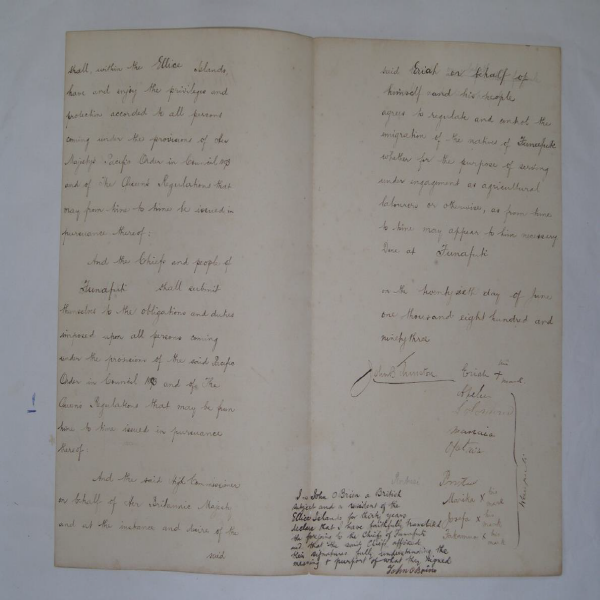 shall, within the Ellice Islands,
have and enjoy the privileges and
protection accorded to all persons
coming under the provisions of Her
Majesty's Pacific Order in Council 1893
and of The Queen's Regulations that
may from time to time be issued in
pursuance thereof:
And the Chiefs and people of
Funafuti shall submit
themselves to the obligations and duties
imposed upon all persons coming
under the provisions of the said Pacific
Order in Council 1893 and of The
Queen's Regulations that may be from
time to time issued in pursuance
thereof:
And the said High Commissioner
on behalf of Her Britannic Majesty
and at the instance and desire of the
said
said Eriah on behalf of
himself and his people
agrees to regulate and control the
migration of the natives of Funafuti
whether for the purpose of serving
under engagement as agricultural
labourers or otherwise, as from time
to time may appear to him necessary
Done at Funafuti
on the day of June
one thousand eight hundred and
ninety three
John B Thurston
Eriah + mark
Opetaia
his
x mark
Josefa x his mark
x his mark
I, John O'Brien a British
subject and a resident of the
Ellice Islands for thirty years
declare that I have faithfully translated
the foregoing to the Chief of Funafuti
and that the said Chief affixed
their signatures fully understanding the
meaning & purport of what they signed
John O'Brien